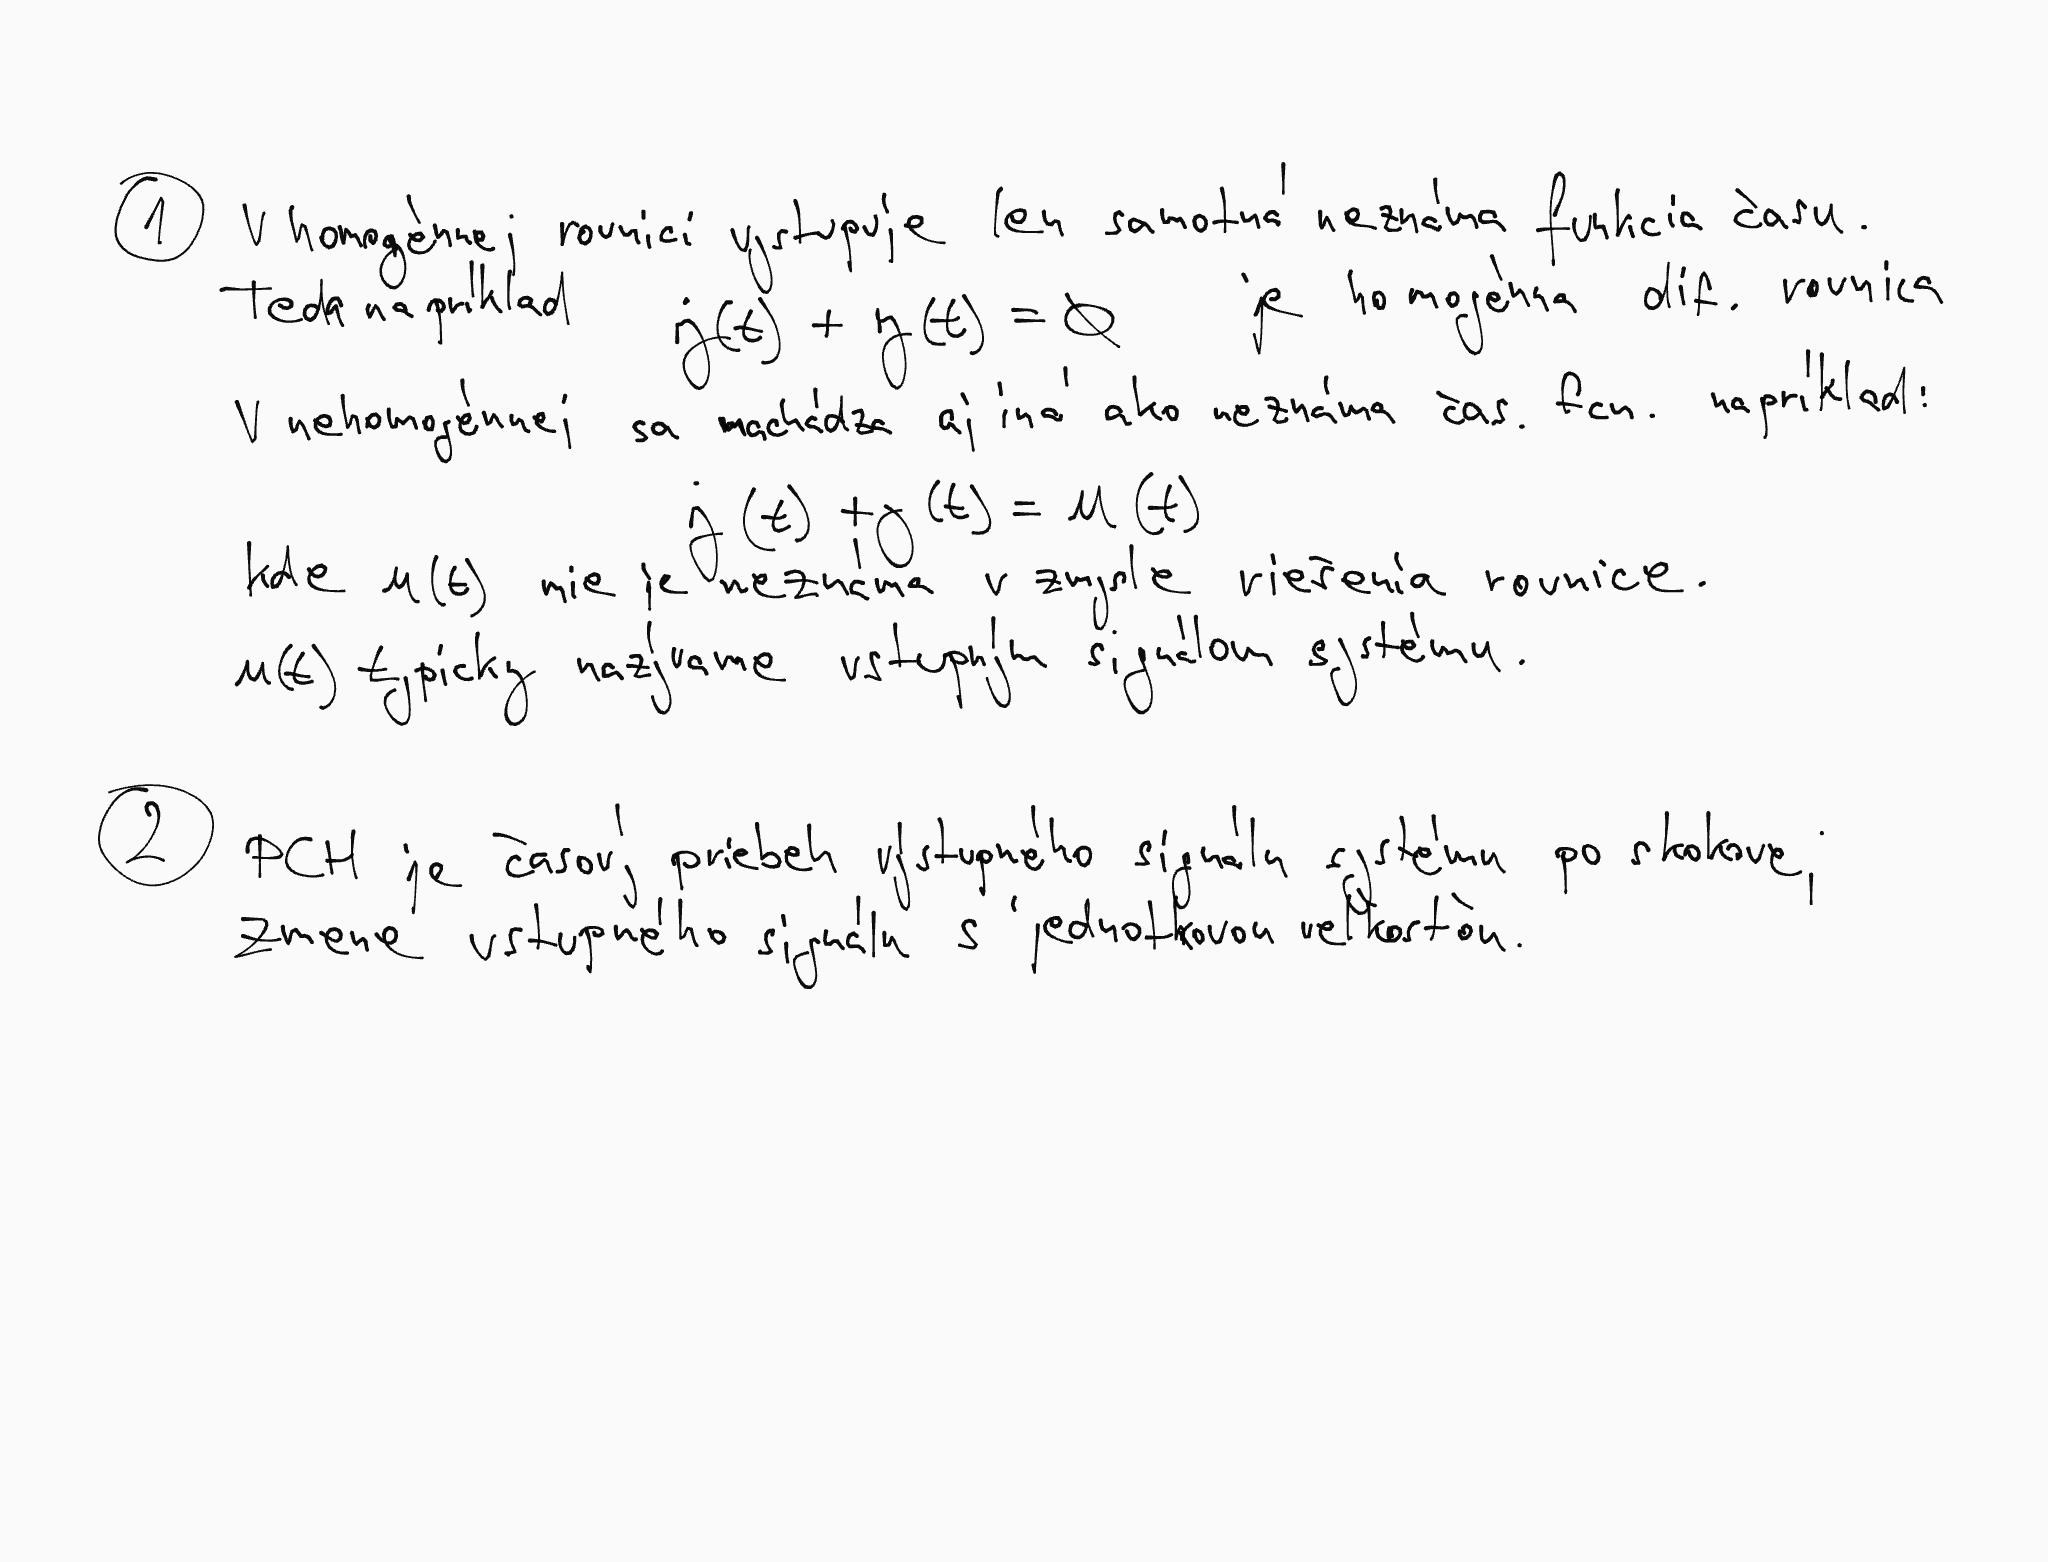 ① V homogénnej rovnici vystupuje len samotná neznáma funkcia času.
Teda napríklad ẏ(t) + y(t) = 0 je homogénna dif. rovnica
V nehomogénnej sa nachádza aj iná ako neznáma čas. fcn. napríklad:
ẏ(t) + y(t) = u(t)
kde u(t) nie je neznáma v zmysle riešenia rovnice.
u(t) typicky nazývame vstupným signálom systému.
② PCH je časový priebeh výstupného signálu systému po skokovej
zmene vstupného signálu s jednotkovou veľkosťou.